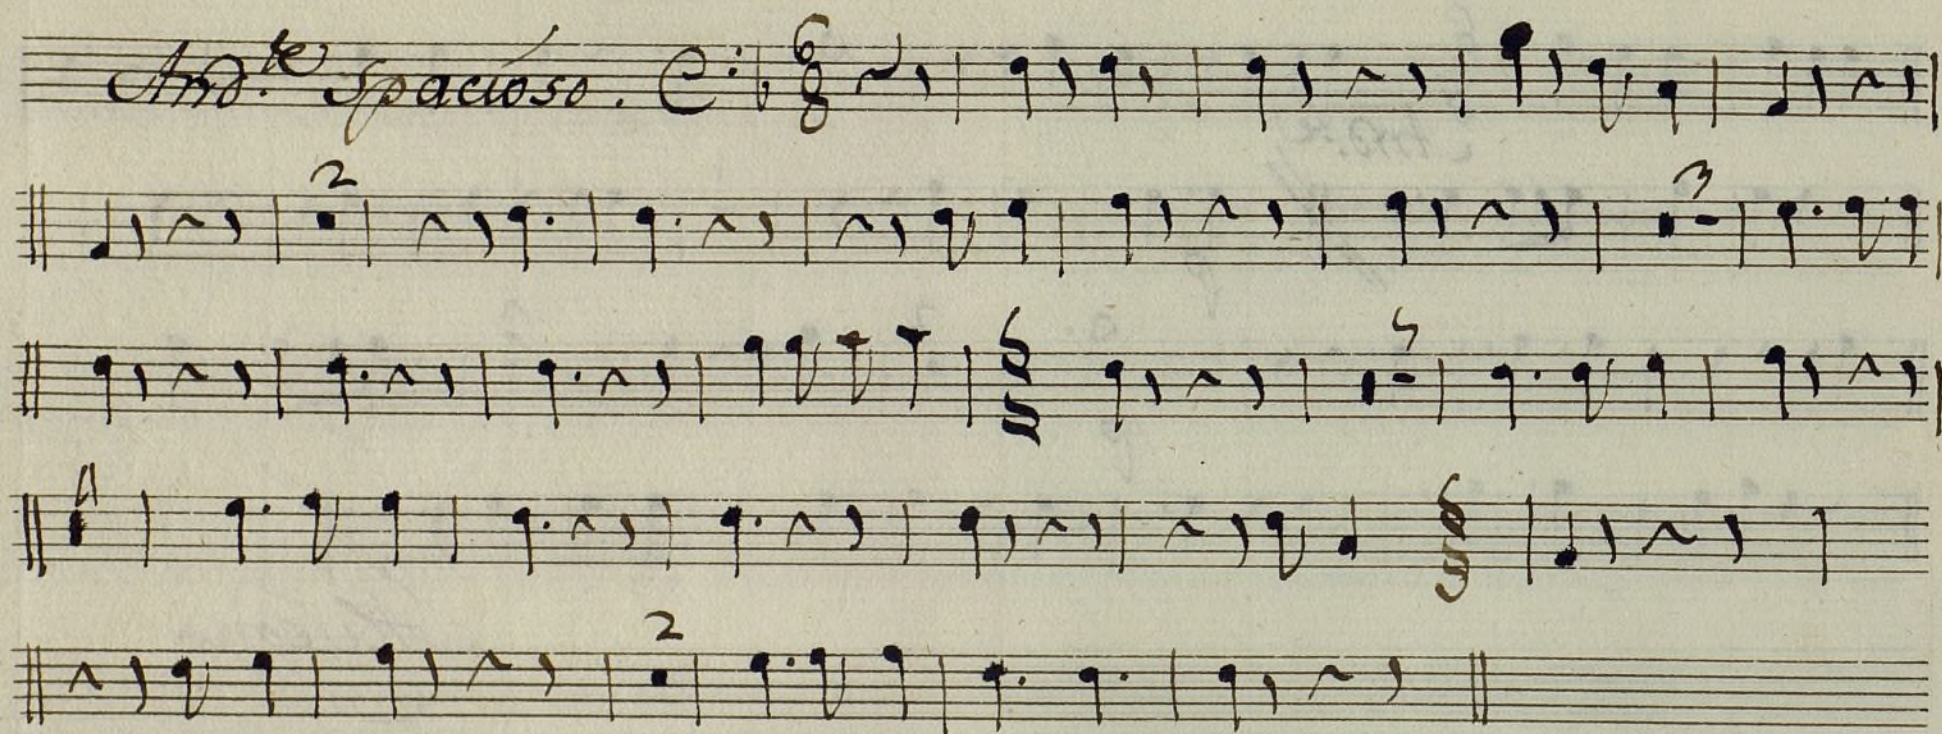 And.te Spacioso. 6 8
2
3
5
2